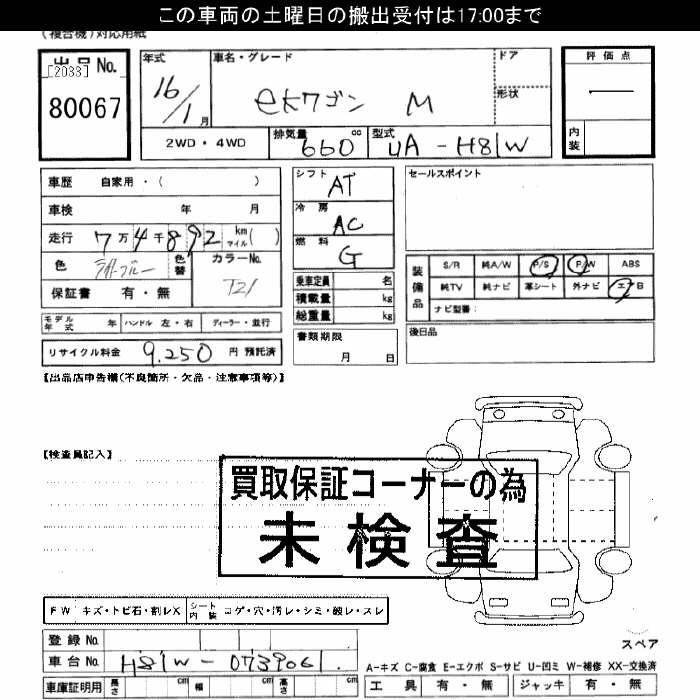 この車両の土曜日の搬出受付は17:00まで
(複合機)対応用紙
出品 No.
[2033]
80067
年式
16/1月
車名・グレード
ekワゴン M
ドア
形状
評価点
—
内装
2WD・4WD
排気量 660 cc
型式 UA-H81W
車歴 自家用・( )
車検 年 月
走行 7万4千892 km マイル( )
色 ライトブルー 色替 カラーNo. T21
保証書 有・無
シフト AT
冷房 AC
燃料 G
乗車定員 名
積載量 kg
総重量 kg
セールスポイント
装備品
S/R 純A/W P/S P/W ABS
純TV 純ナビ 革シート 外ナビ エアB
ナビ型番:
モデル年式 年 ハンドル 左・右 ディーラー・並行
書類期限 月 日
後日品
リサイクル料金 9,250 円 預託済
【出品店申告欄(不良箇所・欠品・注意事項等)】
【検査員記入】
買取保証コーナーの為
未検査
FW キズ・トビ石・割レX シート内装 コゲ・穴・汚レ・シミ・破レ・スレ
登録 No.
車台 No. H81W-0739061
車庫証明用 長さ cm 幅 cm 高さ cm
スペア
A-キズ C-腐食 E-エクボ S-サビ U-凹ミ W-補修 XX-交換済
工具 有・無 ジャッキ 有・無